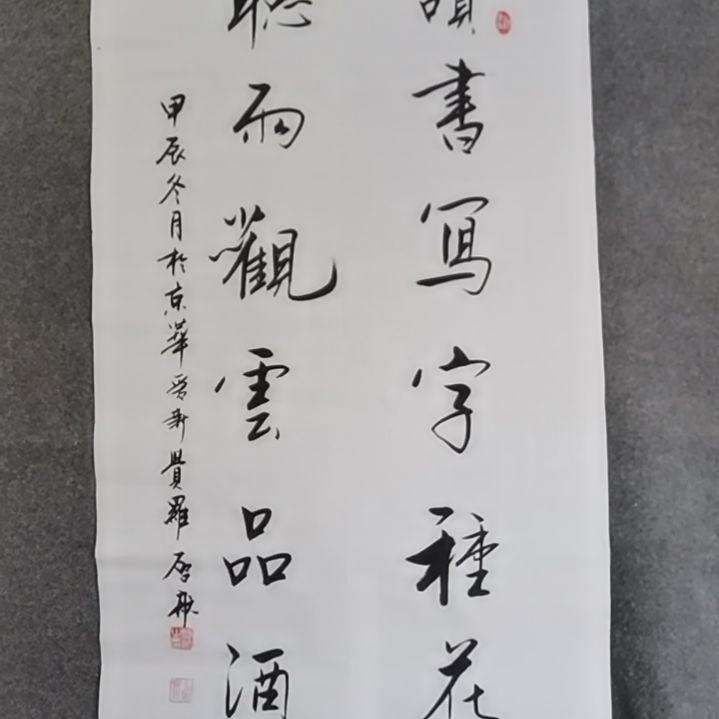 讀書写字種花
聽雨觀雲品酒
甲辰冬月於京華愛新覺羅啟